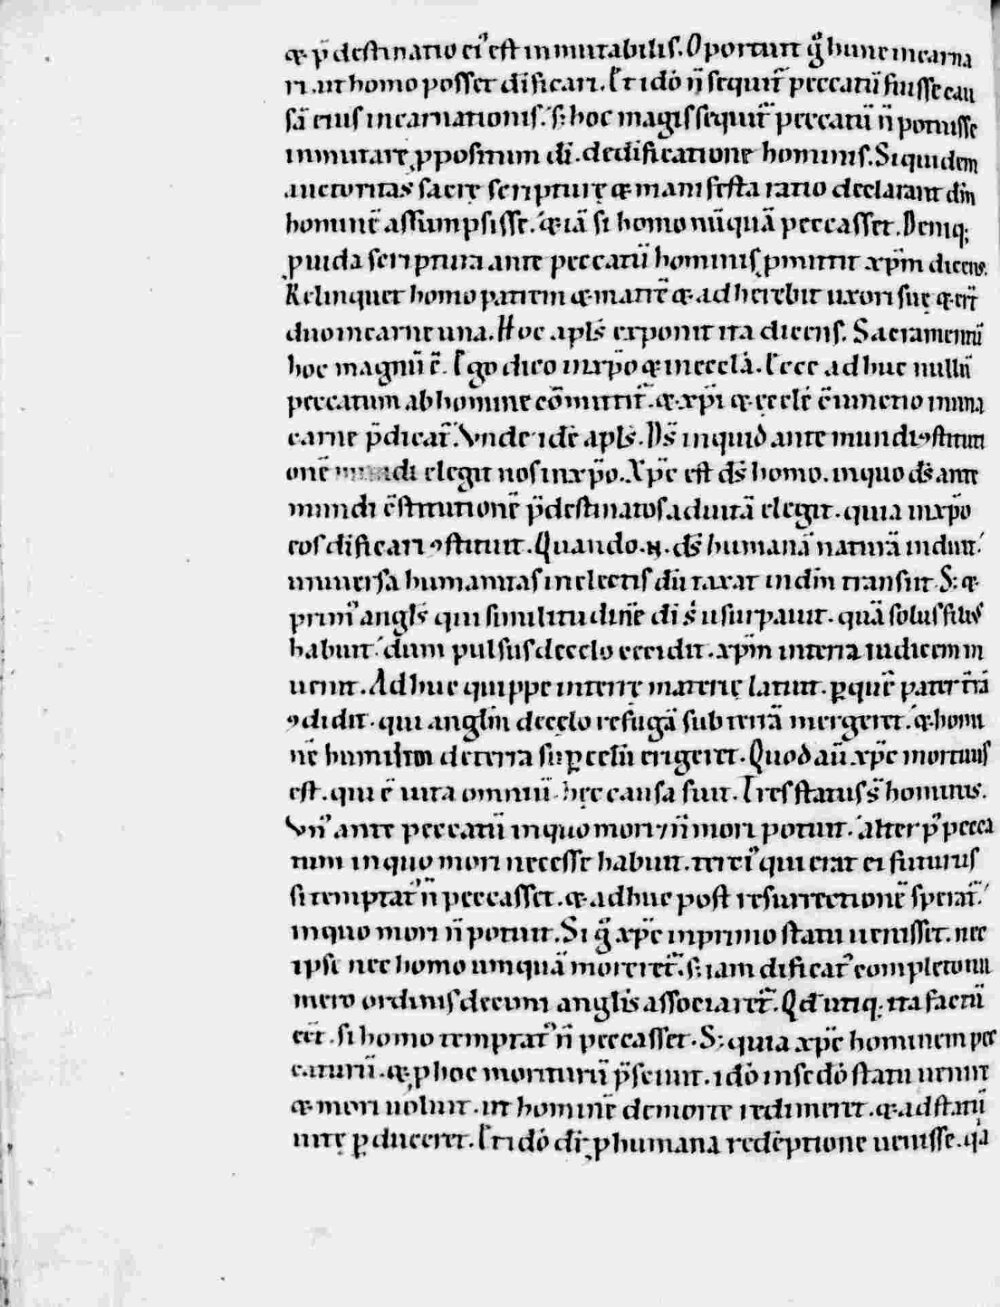 ⁊ p̄destinatio ei᾿ est inmutabilis. Oportuit g̊ hunc incarna
ri. ut homo posset dificari. Et idō n̄ sequit᷑ peccatū fuisse cau
sā eius incarnationis. s; hoc magis sequit᷑ peccatū n̄ potuisse
inmutare ꝓpositum di. de dificatione hominis. Siquidem
auctoritas sacrę scripturę ⁊ manifesta ratio declarant dm̄
hominē assumpsisse. ⁊iā si homo nūquā peccasset. Deniq;
ꝓuida scriptura ante peccatū hominis ꝓmittit xp̄m dicens.
Relinquet homo patrem ⁊ matrē ⁊ adherebit uxori suę ⁊ er̄t
duo in carne una. Hoc apls̄ exponit ita dicens. Sacramentū
hoc magnū ē. Ego dico in xp̄o ⁊ in eccl̄a. Ecce adhuc nullū
peccatum ab homine cōmittit᷑. ⁊ xp̄i ⁊ ęccl̄e c̄iunctio in una
carne p̄dicat᷑. Vnde idē apls̄. Ds̄ inquid ante mundi ꝯstituti
onē mundi elegit nos in xp̄o. Xp̄c est ds̄ homo. in quo ds̄ ante
mundi c̄stitutionē p̄destinatos ad uitā elegit. quia in xp̄o
eos dificari ꝯstituit. Quando .n. ds̄ humanā naturā induit.
uniuersa humanitas in electis dū taxat in dm̄ transiit. S; ⁊
prim᾿ angl̄s qui similitudinē di s᷒ usurpauit. quā solus filius
habuit. dum pulsus de cęlo cecidit. xp̄m in terra iudicem in
uenit. Adhuc quippe in terrę materię latuit. ꝑ quē pater t̄rā
ꝯdidit. qui angl̄m de cęlo refugā sub terrā mergeret. ⁊ homi
nē humilem de terra suꝑ cęlū erigeret. Quod aū xp̄c mortuus
est. qui ē uita omniū. hęc causa fuit. Tres status s̄ hominis.
Vn᾿ ante peccatū in quo mori ⁊ n̄ mori potuit. alter p᾿ pecca
tum in quo mori necesse habuit. terci᾿ qui erat ei futurus
si temptat᾿ n̄ peccasset. ⁊ adhuc post resurrectionē sperat᷑.
in quo mori n̄ potuit. Si g̊ xp̄c in primo statu uenisset. nec
ipse nec homo umquā moreret᷑. s; iam dificat᾿ completo nu
mero ordinis decimi angl̄is associaret᷑. Qd̄ utiq; ita factū
eēt. si homo temptat᾿ n̄ peccasset. S; quia xp̄c hominem pec
caturū. ⁊ ꝑ hoc moriturū p̄sciuit. idō in sc̄do statu uenit
⁊ mori uoluit. ut hominē de morte redimeret. ⁊ ad statū
uitę ꝑduceret. Et idō di᷑ ꝓ humana redēptione uenisse. qa̅